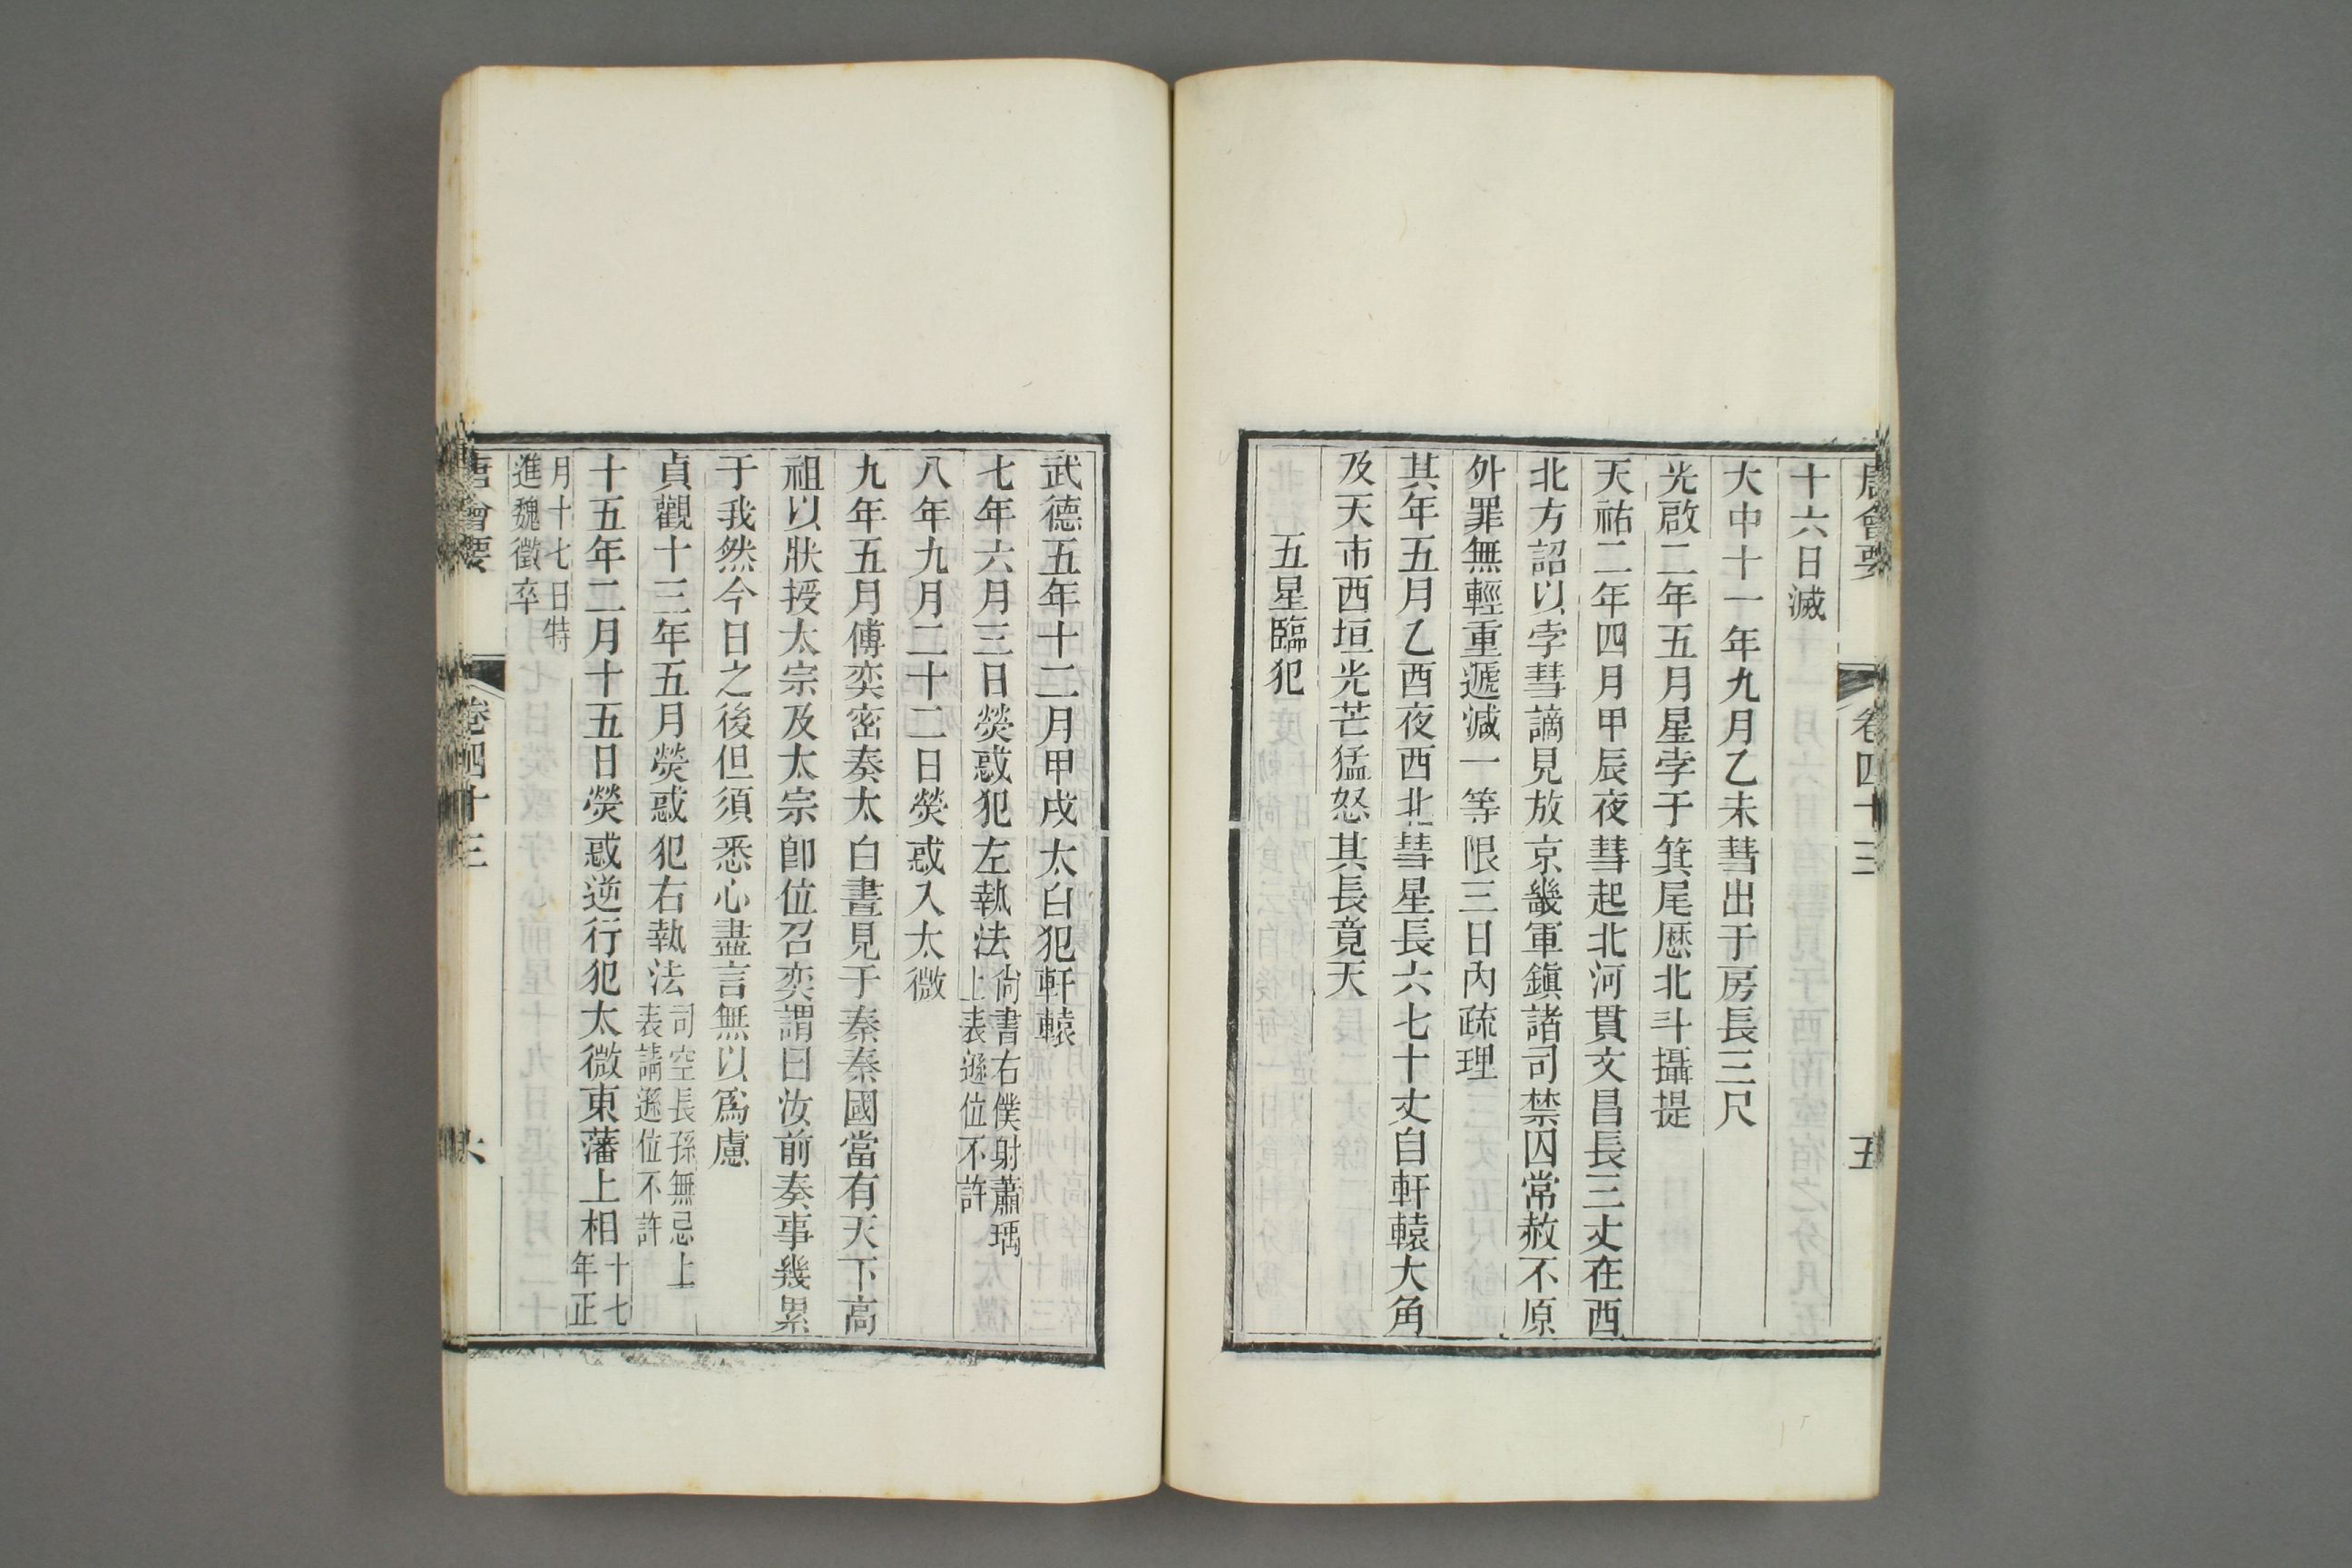 唐會要 卷四十三 五
十六日滅
大中十一年九月乙未彗出于房長三尺
光啟二年五月星孛于箕尾歷北斗攝提
天祐二年四月甲辰夜彗起北河貫文昌長三丈在西
北方詔以孛彗謫見放京畿軍鎮諸司禁囚常赦不原
外罪無輕重遞減一等限三日內疏理
其年五月乙酉夜西北彗星長六七十丈自軒轅大角
及天市西垣光芒猛怒其長竟天
五星臨犯
武德五年十二月甲戌太白犯軒轅
七年六月三日熒惑犯左執法尙書右僕射蕭瑀上表遜位不許
八年九月二十二日熒惑入太微
九年五月傅奕密奏太白晝見于秦秦國當有天下高
祖以狀授太宗及太宗卽位召奕謂曰汝前奏事幾累
于我然今日之後但須悉心盡言無以爲慮
貞觀十三年五月熒惑犯右執法司空長孫無忌上表請遜位不許
十五年二月十五日熒惑逆行犯太微東藩上相十七年正
月十七日特進魏徵卒
唐會要 卷四十三 六